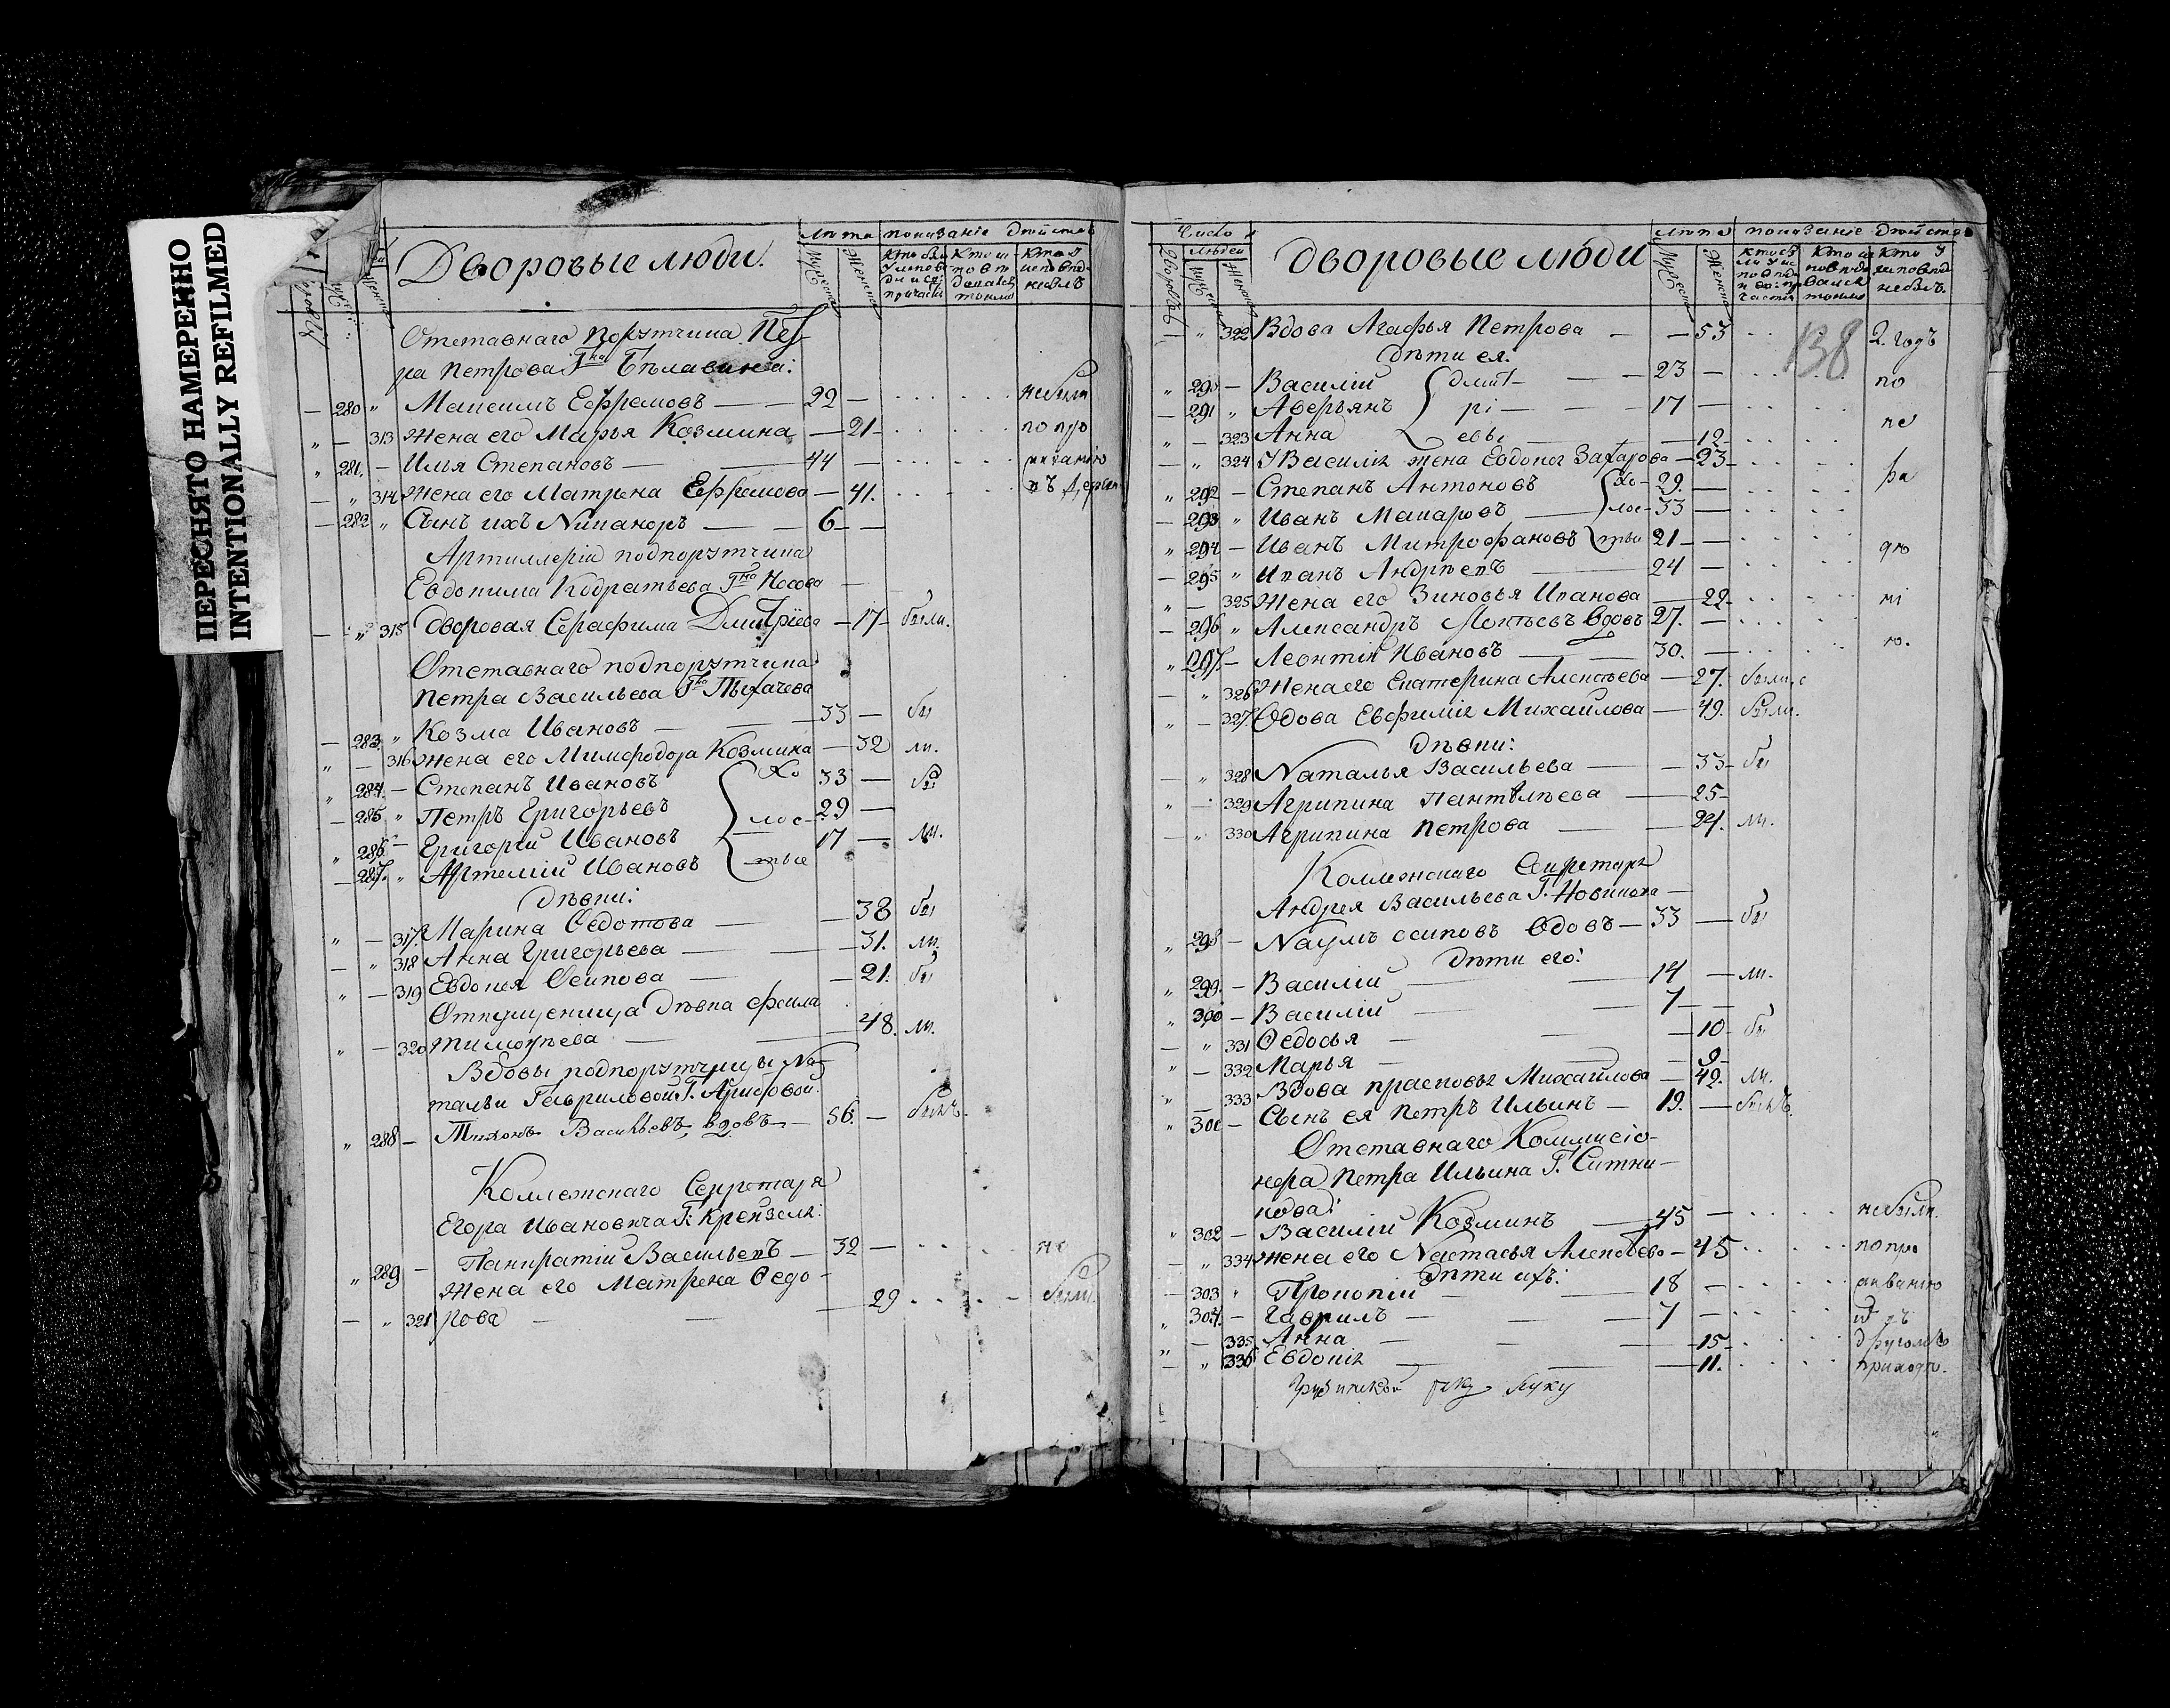 ПЕРЕСНЯТО НАМЕРЕННО
INTENTIONALLY REFILMED
Дворовые люди.
лѣта показанiе дѣйства
Отставнаго Порутчика Пет
ра Петрова Гна Бѣлавина:
280 Максимъ Ефремовъ 22 небыли
313 Жена его Марья Козмина 21 по про
281. Илья Степановъ 44
314 Жена его Матрена Ефремова 41.
282 Сынъ ихъ Никаноръ 6
Артиллерiи подпорутчика
Евдокима Кодратьева Гна Носова
315 Дворовая Серафима Дмитрiева 17 были.
Отставнаго подпорутчика
Петра Васильева Гна
283. Козма Ивановъ 33 бы
316 Жена его Козмина 32 ли.
284. Степанъ Ивановъ Хо 33 бы
285 Петръ Григорьевъ 29
286 Григорiй Ивановъ лос 17 ли.
287. Артемiй Ивановъ тые
Дѣвки:
317. Марина Ѳедотова 38 бы
318 Анна Григорьева 31. ли.
319 Евдокея Осипова 21. бы
Отпущеница дѣвка
320 Тимоѳѣева 48. ли.
Вдовы подпорутчицы На
тальи Гавриловой Г.
288 Тихонъ Васильевъ, вдовъ 56. былъ.
Коллежскаго Секретаря
Егора Ивановича Г. Крейзеля:
289 Панкратiй Васильевъ 32 не
Жена его Матрена Ѳедо
321 рова 29 были.
Число
людей
дворовые люди
лѣта показанiе дѣйства
138
322 Вдова Агафья Петрова 53 2. годъ
Дѣти ея:
290 Василiй Дмит 23 по
291 Аверьянъ рi 17
323 Анна евы 12 не
324 У Василiя жена Евдокея Захарова 23
292 Степанъ Антоновъ Хо 29. ра
293 Иванъ Макаровъ лос 33
294 Иванъ Митрофановъ тые 21
295 Иванъ Андрѣевъ 24 дю
325 Жена его Зиновья Иванова 22
296 Александръ вдовъ 27. нi
297. Леонтiй Ивановъ 30. ю.
326 Жена его Екатерина Алексѣева 27. были
327. Вдова Евфимiя Михайлова 49. были.
Дѣвки:
328 Наталья Васильева 33 бы
329 Агрипина Пантѣлѣева 25
330 Агрипина Петрова 24. ли.
Коллежскаго Секретаря
Андрея Васильева Г. Новикова
298 Наумъ Осиповъ вдовъ 33 бы
Дѣти его:
299. Василiй 14 ли.
300 Василiй 7
331 Ѳедосья 10 бы
332 Марья 9
333 Вдова Прасковья Михайлова 42. ли.
301 Сынъ ея Петръ Ильинъ 19. былъ.
Отставнаго Коммисiо
нера Петра Ильина Г. Ситни
кова:
302 Василiй Козминъ 45 небыли.
334 Жена его Настасья Алексѣева 45 по про
Дѣти ихъ:
303 Прокопiй 18 живанiю
304. Гаврилъ 7
335. Анна 15 другомъ
336 Евдокiя 11. приходѣ.